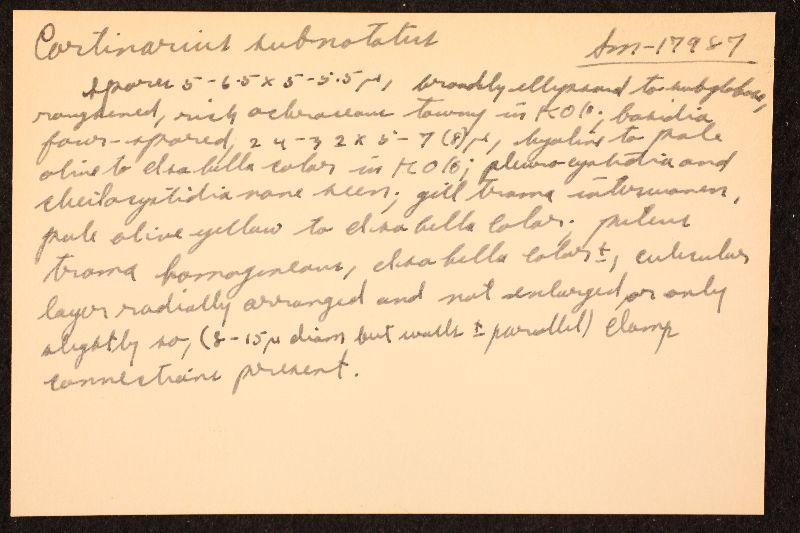 Cortinarius subnotatus Sm-17987
Spores 5-6.5 x 5-5.5 µ, broadly ellipsoid to subglobose,
roughened, rich ochraceous tawny in KOH; basidia
four-spored, 24-32 x 5-7 (8) µ, hyaline to pale
olive to Isabella color in KOH; pleurocystidia and
cheilocystidia none seen; gill trama interwoven,
pale olive yellow to Isabella color; pileus
trama homogeneous, Isabella color ±, cuticular
layer radially arranged and not enlarged or only
slightly so, (8-15 µ diam but walls ± parallel) Clamp
connections present.